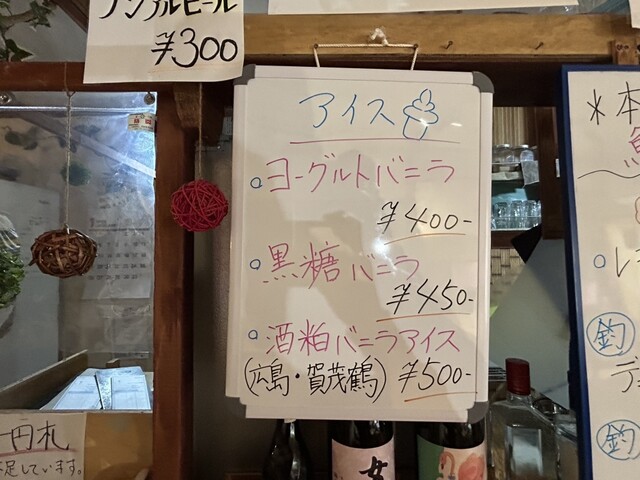 ノンアルビール
¥300
アイス
ヨーグルトバニラ
¥400-
黒糖バニラ
¥450-
酒粕バニラアイス
(広島・賀茂鶴) ¥500-
*本
釣
釣
円札
足しています。
女